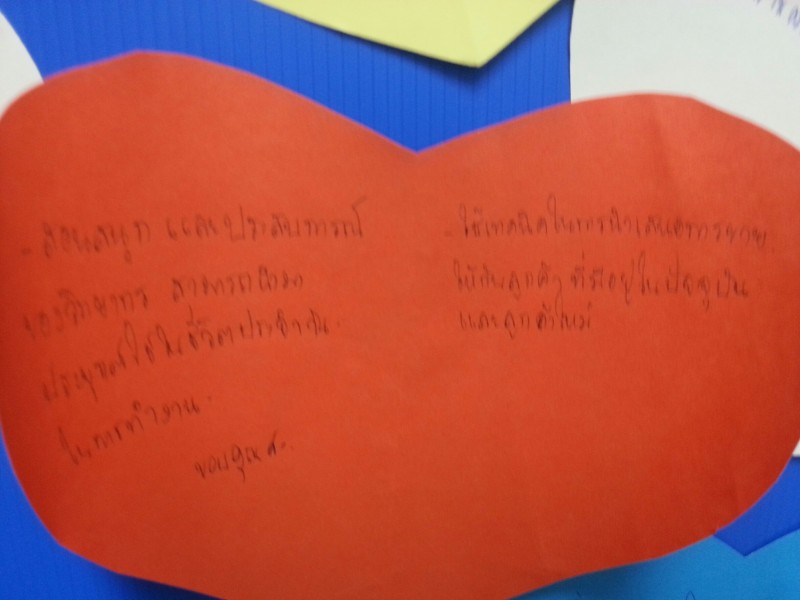 - สอนสนุก และประสบการณ์
ของวิทยากร สามารถนำมา
ประยุกต์ใช้ในชีวิตประจำวัน.
ในการทำงาน.
ขอบคุณค่ะ.
- ใช้เทคนิคในการนำเสนอการขาย
ให้กับลูกค้า ที่มีอยู่ในปัจจุบัน
และลูกค้าใหม่